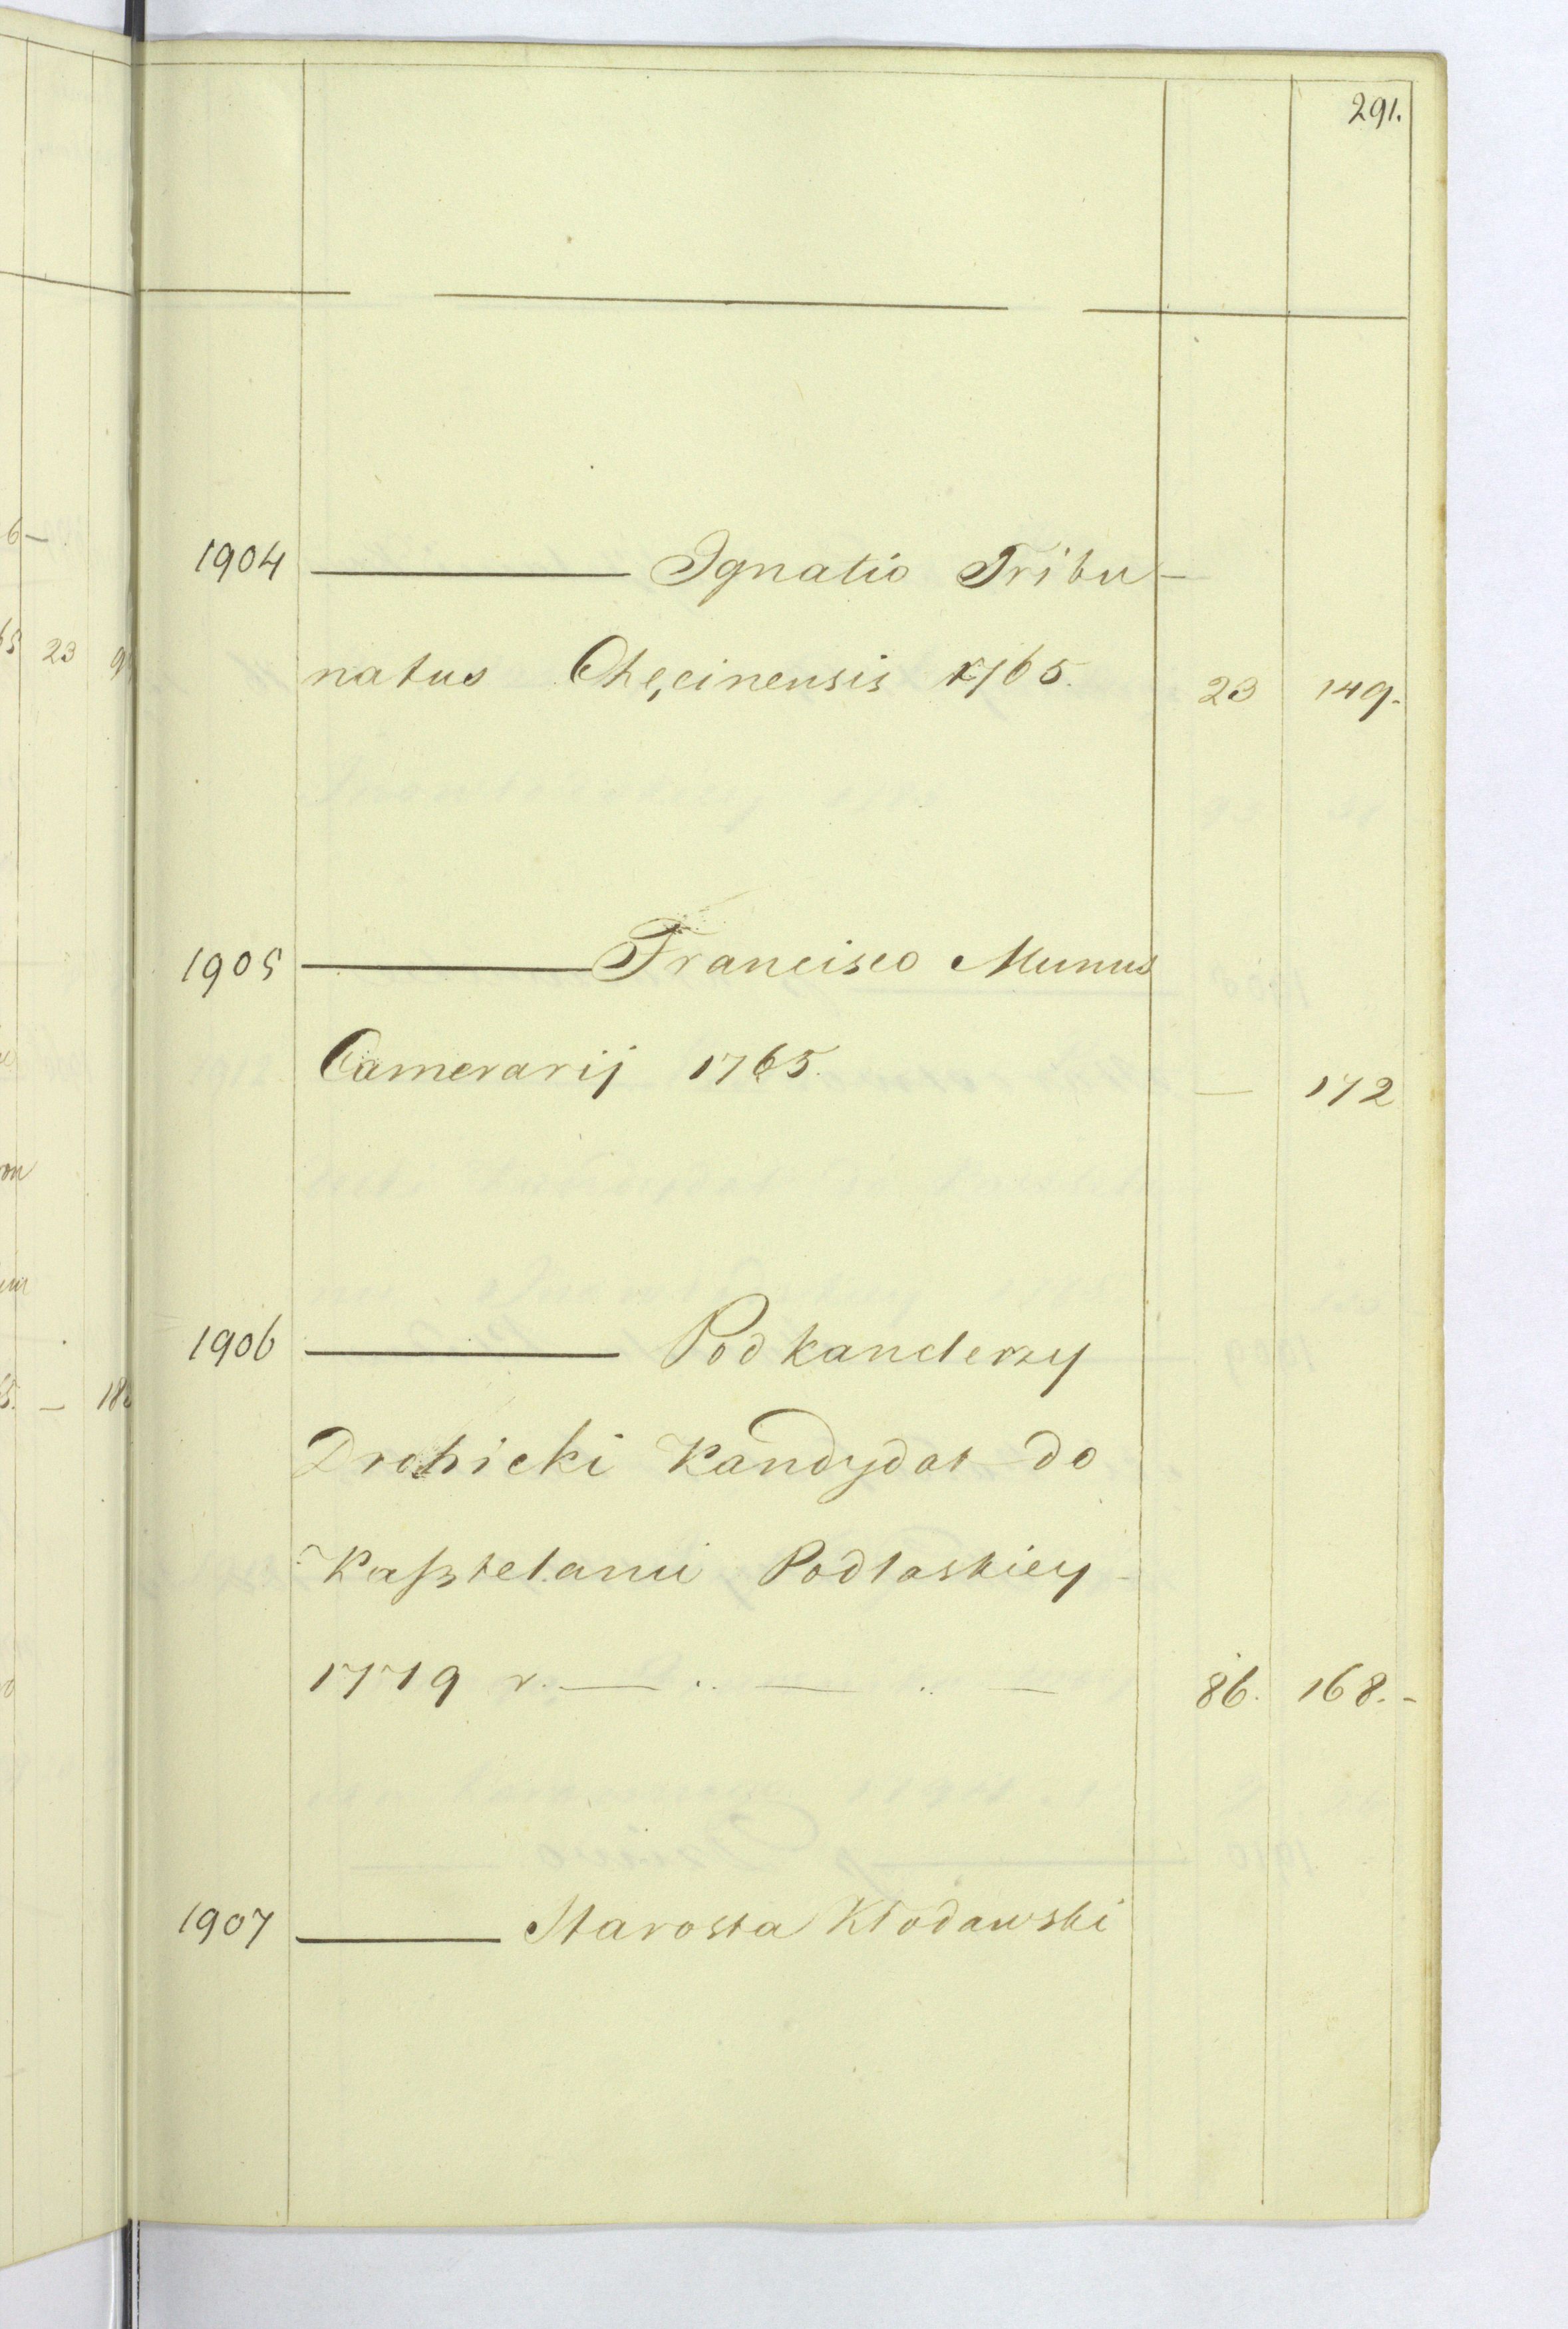 291.
1904 ——— Ignatio Tribu-
natus Chęcinensis 1765. 23 149.
1905 ——— Francisco Munus
Camerarij 1765. — 172
1906 ——— Podkanclerzy
Drohicki Kandydat do
Kaßtelanii Podlaskiey
1779 r. — .. — .. — 86. 168.-
1907 ——— Starosta Kłodawski